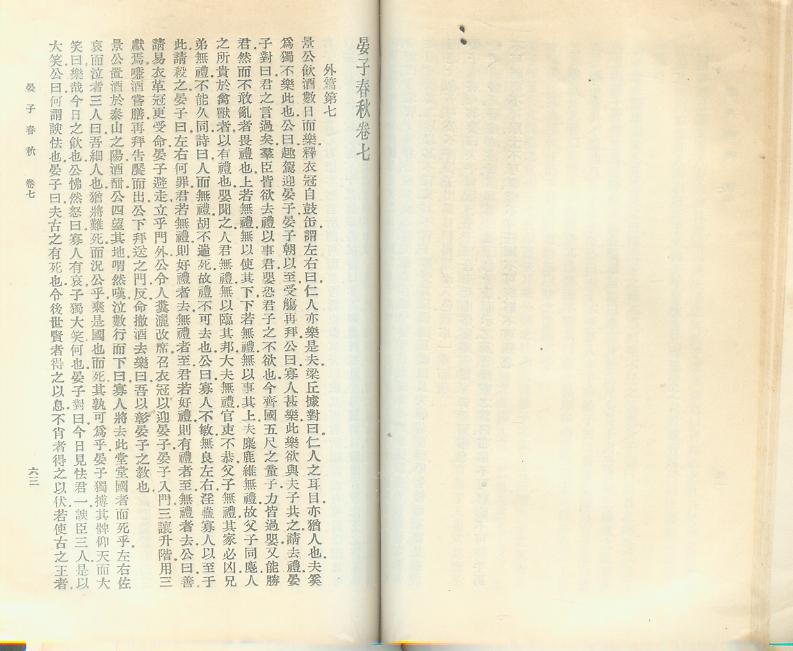 晏子春秋卷七
外篇第七
景公飲酒數日而樂釋衣冠自鼓缶謂左右曰仁人亦樂是夫梁丘據對曰仁人之耳目亦猶人也夫奚
爲獨不樂此也公曰趣駕迎晏子晏子朝以至受觴再拜公曰寡人甚樂此樂欲與夫子共之請去禮晏
子對曰君之言過矣羣臣皆欲去禮以事君嬰恐君子之不欲也今齊國五尺之童子力皆過嬰又能勝
君然而不敢亂者畏禮也上若無禮無以使其下下若無禮無以事其上夫麋鹿維無禮故父子同麀人
之所貴於禽獸者以有禮也嬰聞之人君無禮無以臨其邦大夫無禮官吏不恭父子無禮其家必凶兄
弟無禮不能久同詩曰人而無禮胡不遄死故禮不可去也公曰寡人不敏無良左右淫蠱寡人以至于
此請殺之晏子曰左右何罪君若無禮則好禮者去無禮者至君若好禮則有禮者至無禮者去公曰善
請易衣革冠更受命晏子避走立乎門外公令人糞灑改席召衣冠以迎晏子晏子入門三讓升階用三
獻焉嗛酒嘗膳再拜告饜而出公下拜送之門反命撤酒去樂曰吾以彰晏子之教也
景公置酒於泰山之陽酒酣公四望其地喟然嘆泣數行而下曰寡人將去此堂堂國者而死乎左右佐
哀而泣者三人曰吾細人也猶將難死而況公乎棄是國也而死其孰可爲乎晏子獨搏其髀仰天而大
笑曰樂哉今日之飲也公怫然怒曰寡人有哀子獨大笑何也晏子對曰今日見怯君一諛臣三人是以
大笑公曰何謂諛怯也晏子曰夫古之有死也令後世賢者得之以息不肖者得之以伏若使古之王者
晏子春秋 卷七
六三